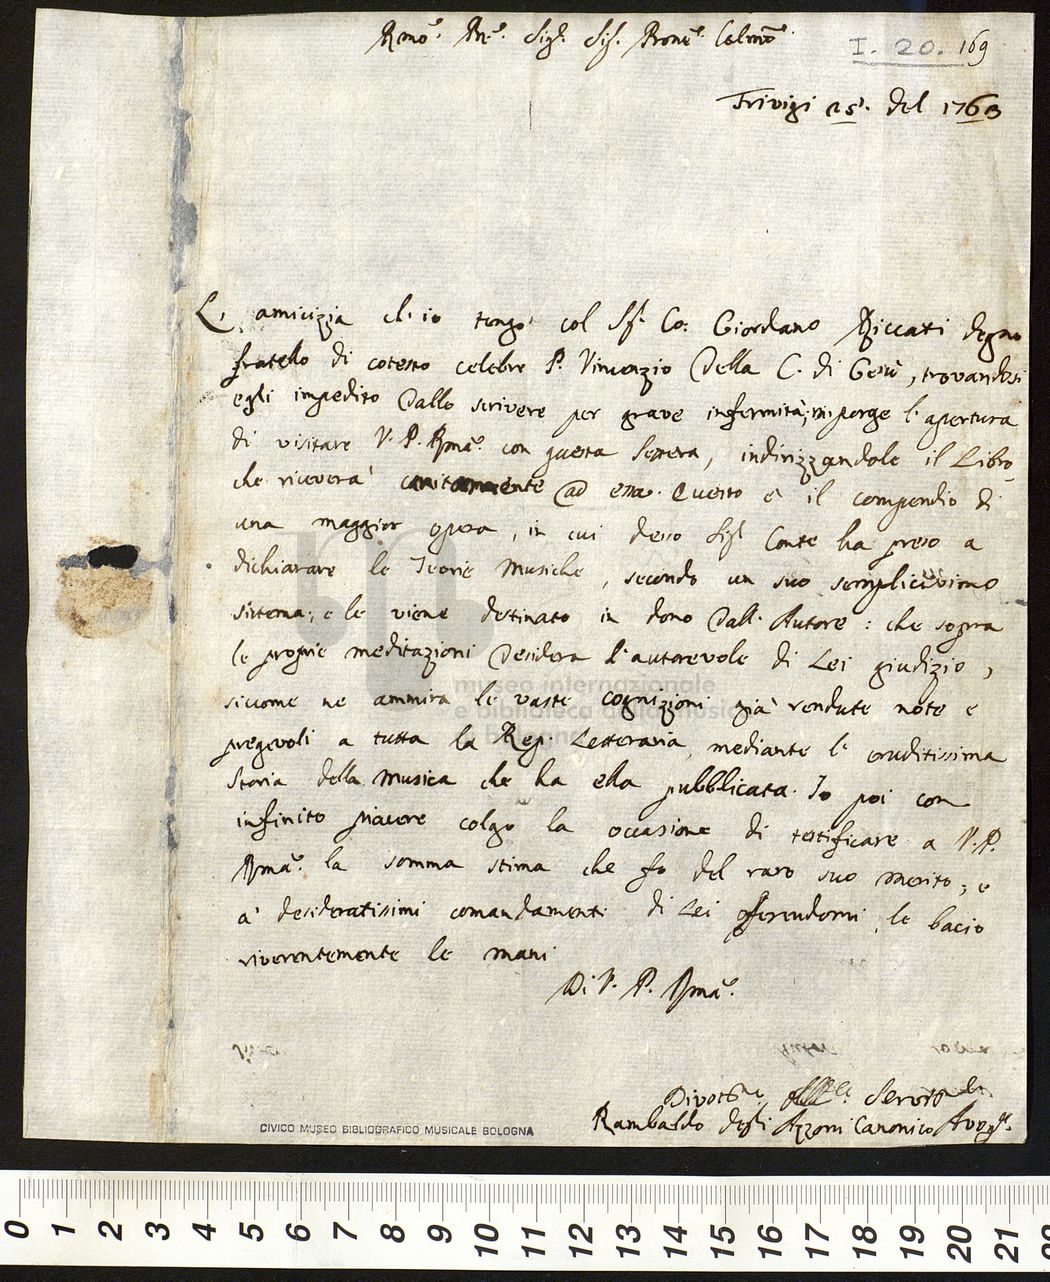 Rmo. Pre. Sigr. Sigr. Prone. Colmo.
I. 20. 169
Trivigi 25. del 1763
L' amicizia ch' io tengo col Sigr. Co: Giordano Riccati degno
fratello di cotesto celebre P. Vincenzio della C. di Gesù, trovandosi
egli impedito dallo scrivere per grave infermità, mi porge l' apertura
di visitare V. P. Rma. con questa lettera, indirizzandole il Libro
che riceverà unitamente ad essa. Questo è il compendio di
una maggior opera, in cui desso Sigr. Conte ha preso a
dichiarare le Teorie Musiche, secondo un suo semplicissimo
sistema; e le viene destinato in dono dall' Autore: che sopra
le proprie meditazioni desidera l' autorevole di Lei giudizio,
siccome ne ammira le vaste cognizioni già rendute note e
pregevoli a tutta la Rep. Letteraria mediante l' eruditissima
Storia della Musica che ha ella pubblicata. Io poi con
infinito piacere colgo la occasione di testificare a V. P.
Rma. la somma stima che fo del raro suo merito; e
a' desideratissimi comandamenti di Lei offerendomi, le bacio
riverentemente le mani
Di V. P. Rma.
Rambaldo degli Azzoni Canonico Avogo.
museo internazionale
e biblioteca della musica
di bologna
CIVICO MUSEO BIBLIOGRAFICO MUSICALE BOLOGNA
0 1 2 3 4 5 6 7 8 9 10 11 12 13 14 15 16 17 18 19 20 21 22